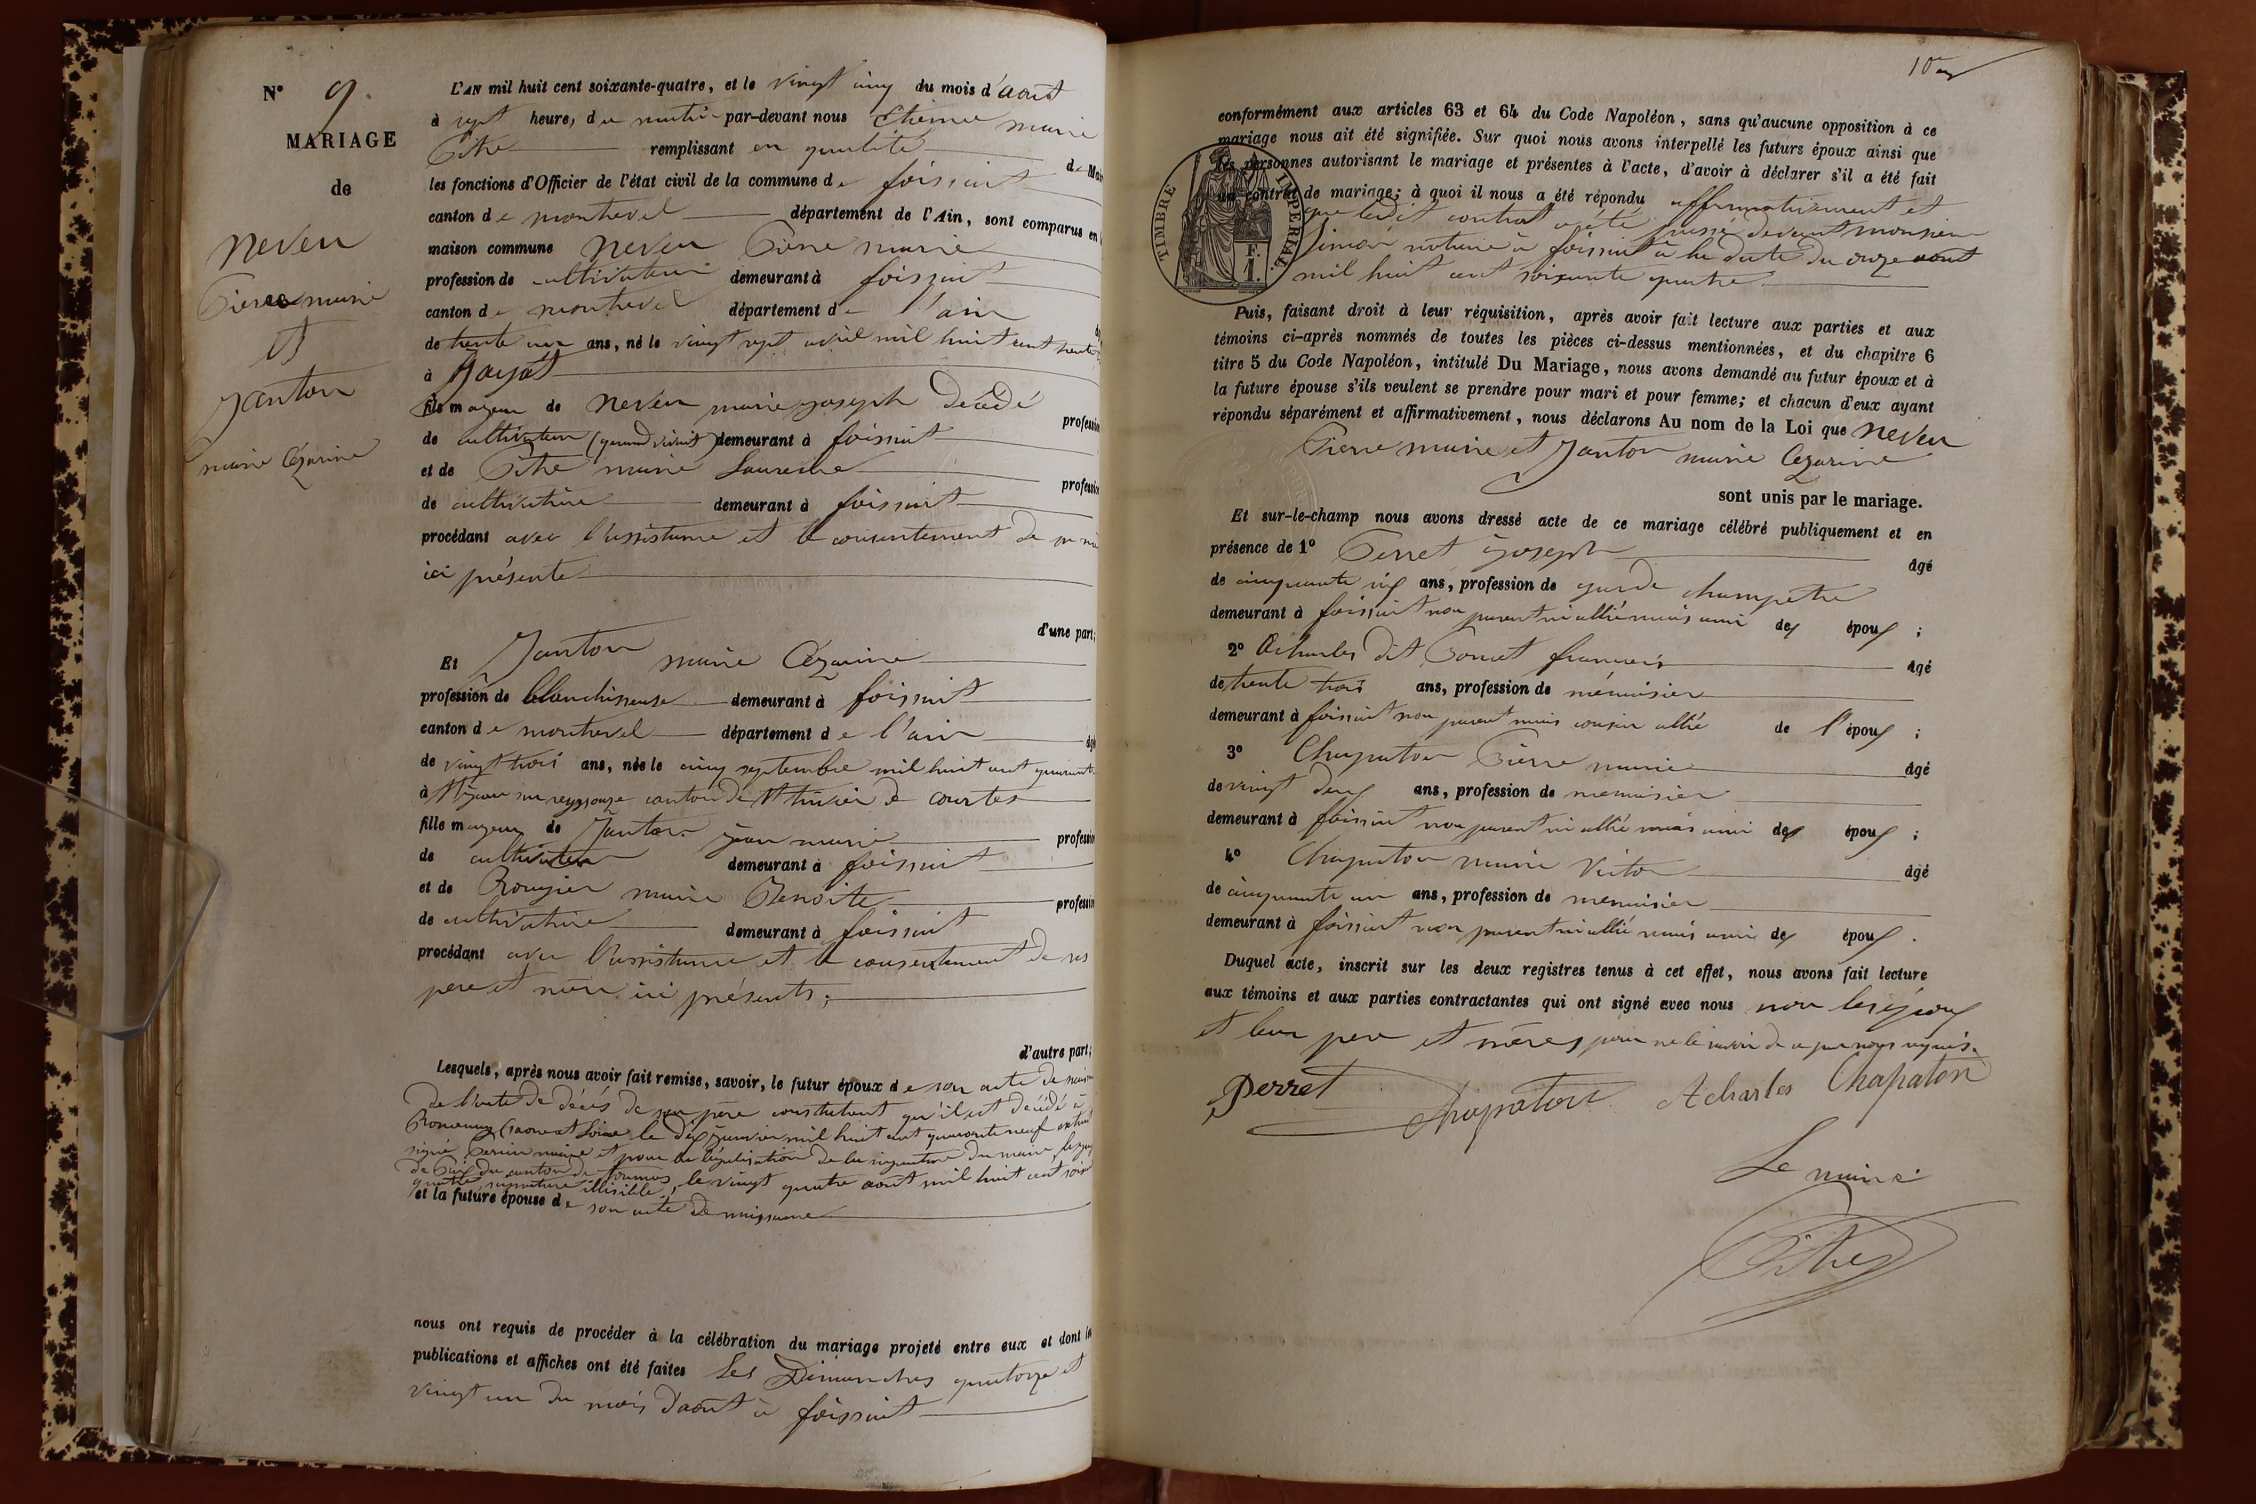 N° 9.
MARIAGE
de
neveu
Pierre marie
et
Janton
marie Cézarine
L'AN mil huit cent soixante-quatre, et le vingt cinq du mois d'aout
à sept heure, du matin par-devant nous Etienne marie
Pitre remplissant en qualité de Maire
les fonctions d'Officier de l'état civil de la commune de foissiat
canton de montrevel département de l'Ain, sont comparus en
maison commune neveu Pierre marie
profession de cultivateur demeurant à foissiat
canton de montrevel département de l'ain
de trente un ans, né le vingt sept avril mil huit cent trente
à Jayat
fils majeur de neveu marie joseph décédé profession
de cultivateur (quand vivait) demeurant à foissiat
et de Pitre marie Laurence profession
de cultivatrice demeurant à foissiat
procédant avec l'assistance et le consentement de sa mère
ici présente
d'une part;
Et Janton marie Cézarine
profession de blanchisseuse demeurant à foissiat
canton de montrevel département de l'ain
de vingt trois ans, née le cinq septembre mil huit cent quarante
à St jean sur reyssouze canton de St trivier de courtes
fille majeure de Janton jean marie profession
de cultivateur demeurant à foissiat
et de Rougier marie Benoite profession
de cultivatrice demeurant à foissiat
procédant avec l'assistance et le consentement de ses
pere et mère ici présents;
d'autre part;
Lesquels, après nous avoir fait remise, savoir, le futur époux de son acte de naissance
de l'acte de décés de son père constatant qu'il est décédé à
Romenay (saone et Loire) le dix janvier mil huit cent quarante neuf extrait
signé Perrin maire et pour la légalisation de la signature du maire, le juge
de Paix du canton de tournus, le vingt quatre aout mil huit cent soixante
quatre, signature illisible,
et la future épouse de son acte de naissance
nous ont requis de procéder à la célébration du mariage projeté entre eux et dont les
publications et affiches ont été faites Les Dimanches quatorze et
vingt un du mois d'aout à foissiat
10
conformément aux articles 63 et 64 du Code Napoléon, sans qu'aucune opposition à ce
mariage nous ait été signifiée. Sur quoi nous avons interpellé les futurs époux ainsi que
les personnes autorisant le mariage et présentes à l'acte, d'avoir à déclarer s'il a été fait
un contrat de mariage; à quoi il nous a été répondu affirmativement et
que ledit contrat a été passé devant monsieur
Simon notaire à foissiat à la date du onze aout
mil huit cent soixante quatre
TIMBRE IMPERIAL.
F.
1.
Puis, faisant droit à leur réquisition, après avoir fait lecture aux parties et aux
témoins ci-après nommés de toutes les pièces ci-dessus mentionnées, et du chapitre 6
titre 5 du Code Napoléon, intitulé Du Mariage, nous avons demandé au futur époux et à
la future épouse s'ils veulent se prendre pour mari et pour femme; et chacun d'eux ayant
répondu séparément et affirmativement, nous déclarons Au nom de la Loi que neveu
Pierre marie et Janton marie Cézarine
sont unis par le mariage.
Et sur-le-champ nous avons dressé acte de ce mariage célébré publiquement et en
présence de 1° Perret joseph âgé
de cinquante six ans, profession de garde champetre
demeurant à foissiat non parent ni allié mais ami des époux ;
2° Acharles dit Bonnet francois âgé
de trente trois ans, profession de menuisier
demeurant à foissiat non parent mais cousin allié de l'époux ;
3° Chapaton Pierre marie âgé
de vingt deux ans, profession de menuisier
demeurant à foissiat non parent ni allié mais ami des époux ;
4° Chapaton marie Victor âgé
de cinquante un ans, profession de menuisier
demeurant à foissiat non parent ni allié mais ami des époux .
Duquel acte, inscrit sur les deux registres tenus à cet effet, nous avons fait lecture
aux témoins et aux parties contractantes qui ont signé avec nous non les époux
et leur pere et mères pour ne le savoir de ce par nous requis.
Perret Chapaton Acharles Chapaton
Le maire
Pitre